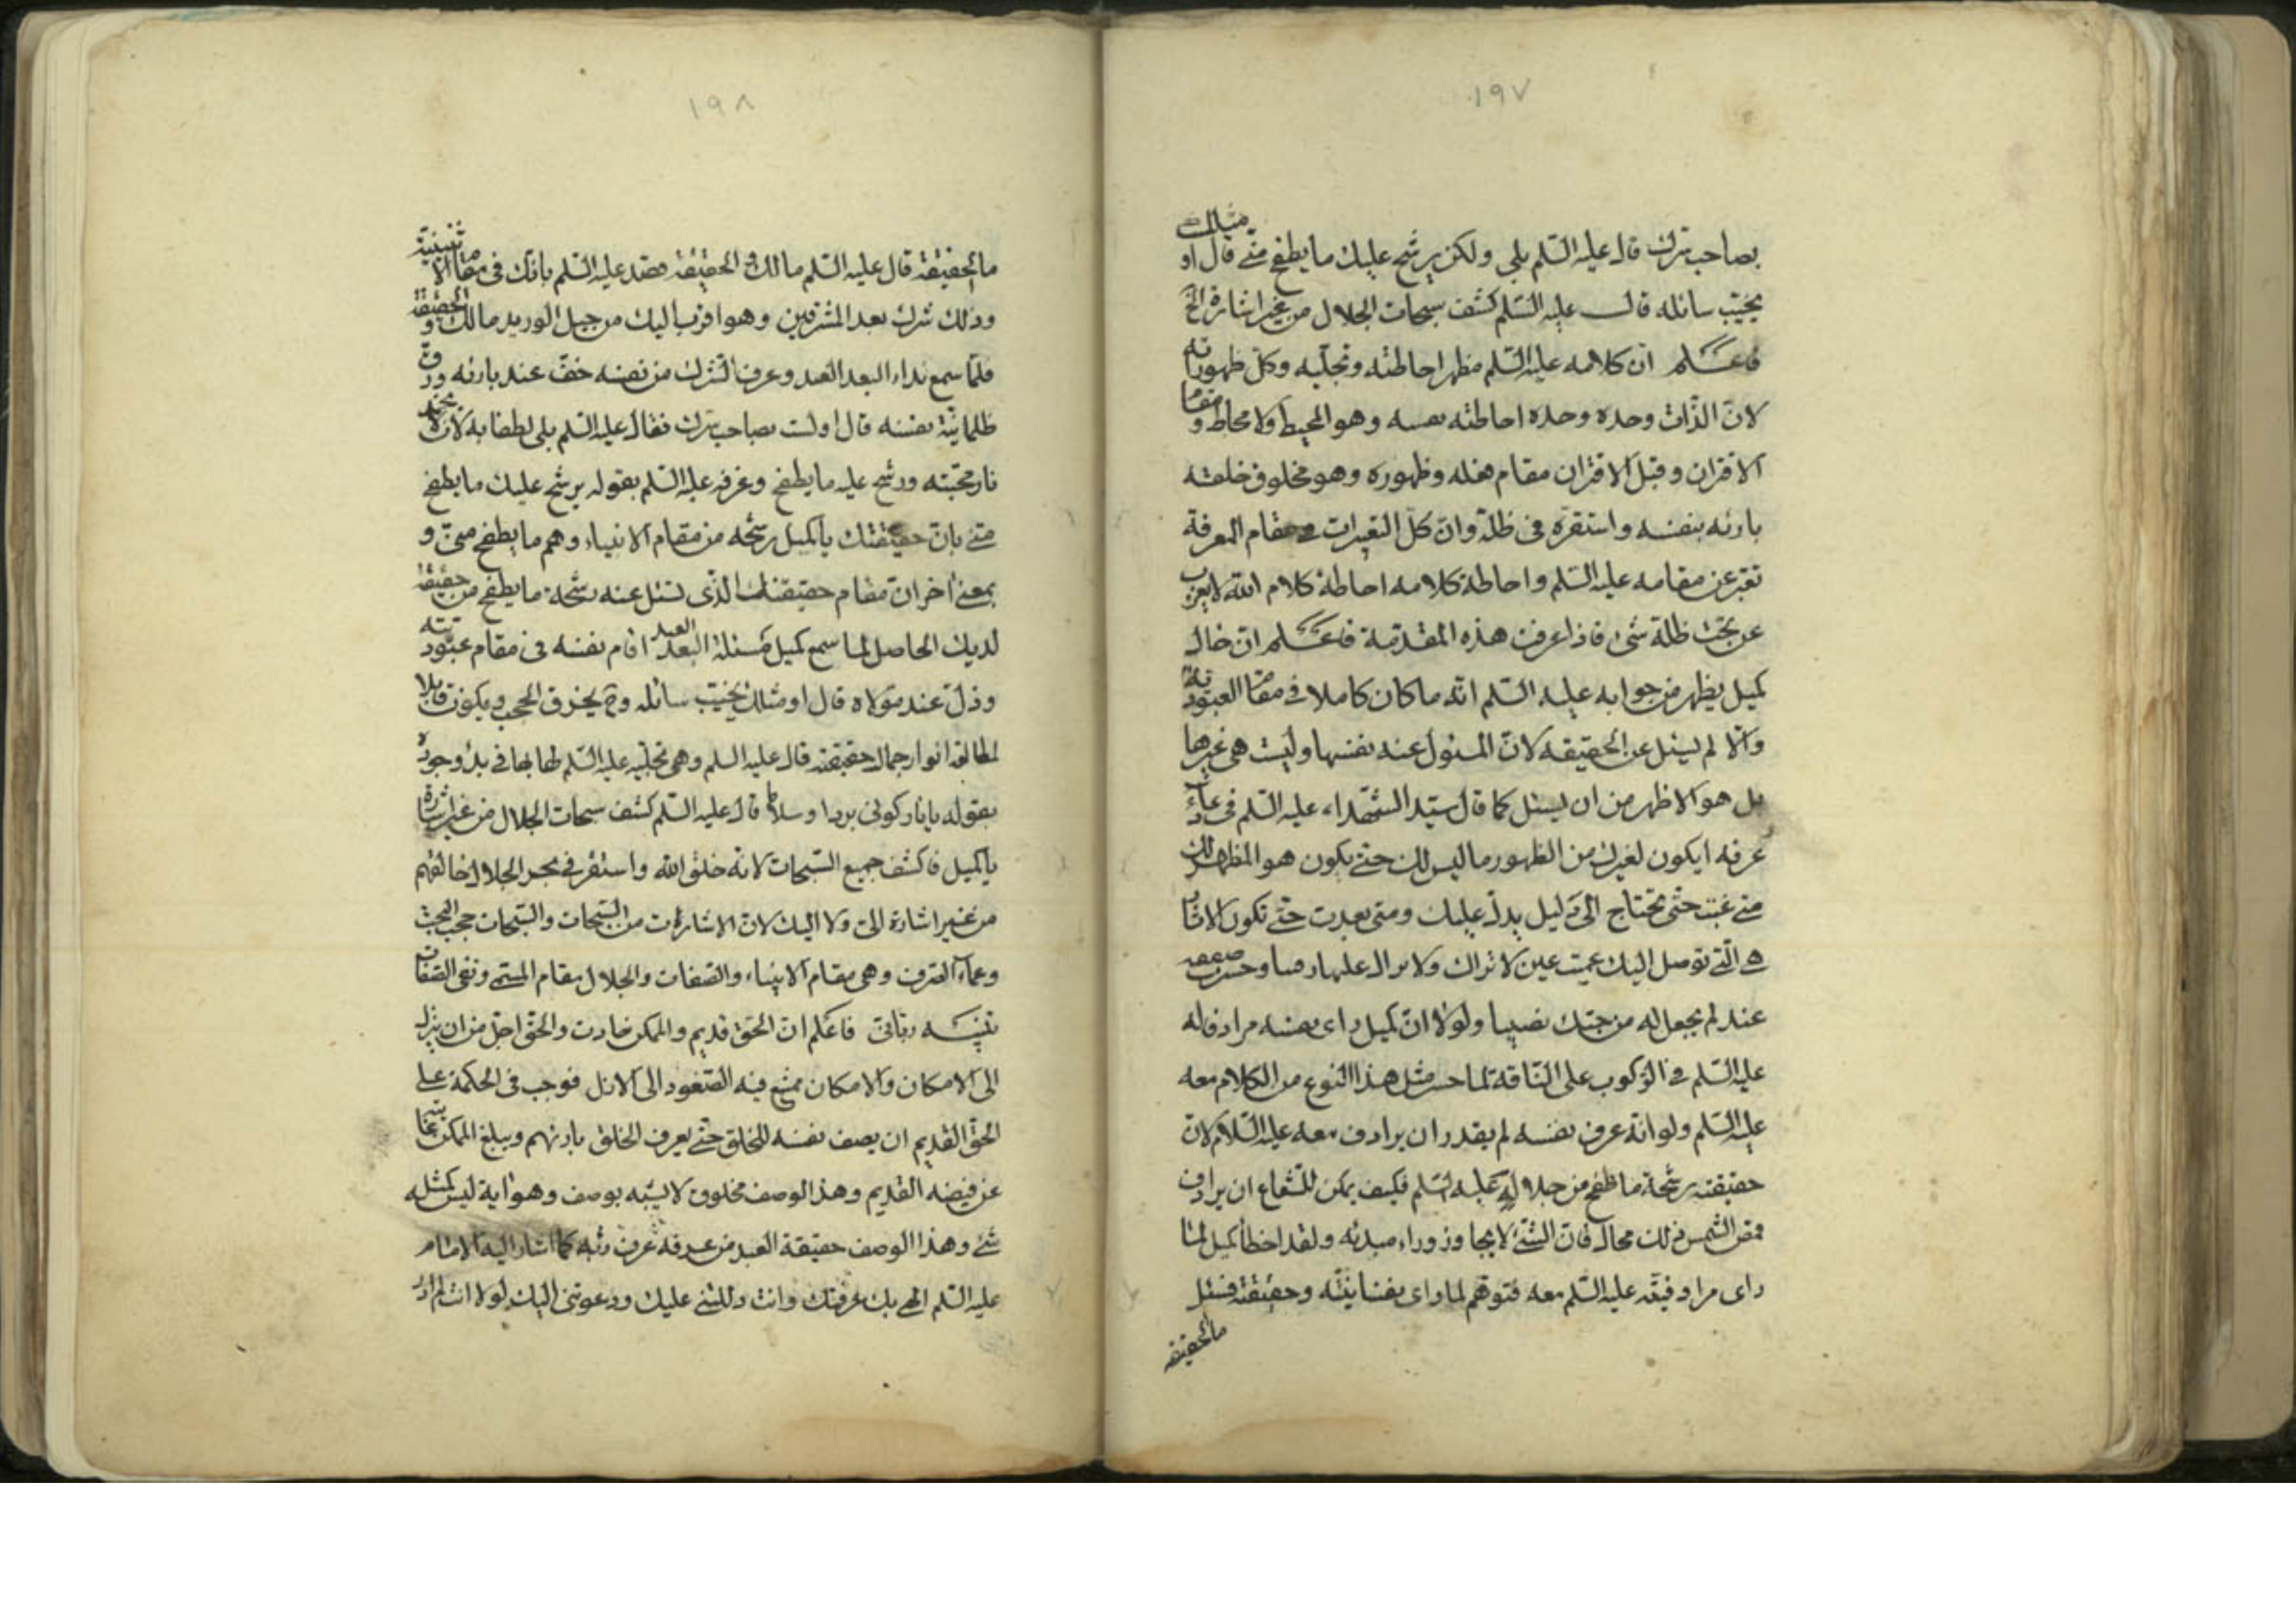 ١٩٧
بصاحب سرّك قال عليه السّلم بلى ولكن يرشح عليك ما يطفح منّي قال او مثلك
يخيّب سائله قال عليه السّلم كشف سبحات الجلال من غير اشارة الخ
فاعلم ان كلامه عليه السّلم مظهر احاطته وتجلّيه وكلّ ظهوراته
لانّ الذّات وحده وحده احاطته نفسه وهو المحيط ولا محاط ومقام
الاقتران وقبل الاقتران مقام فعله وظهوره وهو مخلوق خلقه
بارئه بنفسه واستقرّه فى ظلّه وانّ كلّ التعبيرات فى مقام المعرفة
تعبّر عن مقامه عليه السّلم واحاطة كلامه احاطة كلام اللّه لا يعزب
عن تحت ظلّه شىء فاذا عرفت هذه المقدّمة فاعلم انّ حال
كميل يظهر من جوابه عليه السّلم انّه ما كان كاملا فى مقام العبوديّة
والّا لم يسئل عن الحقيقه لانّ المسئول عنه نفسها وليست هى غيرها
بل هو الاظهر من ان يسئل كما قال سيّد الشّهداء عليه السّلم فى دعاء
عرفه ايكون لغيرك من الظهور ما ليس لك حتّى يكون هو المظهر لك
متى غبت حتّى تحتاج الى دليل يدلّ عليك ومتى بعدت حتّى تكون الاثار
هى الّتى توصل اليك عميت عين لا تراك ولا يزال عليها رقيبا وخسرت صفقة
عبد لم يجعل له من حبّك نصيبا ولولا انّ كميل راى نفسه مرادفا له
عليه السّلم فى الرّكوب على النّاقة لما جسر مثل هذا النوع من الكلام معه
عليه السّلم ولو انّه عرف نفسه لم يقدر ان يرادف معه عليه السّلام لانّ
حقيقته رشحة ما طفح من جلاله عليه السّلم فكيف يمكن للشّعاع ان يرادف
قمص الشّمس فذلك محال فانّ الشّىء لا يجاوز وراء مبدئه ولقد اخطأ كميل لمّا
راى مرادفيّته عليه السّلم معه فتوهّم لما راى نفسانيّته وحقيقته فسئل
ما الحقيقه
١٩٨
ما الحقيقة قال عليه السّلم ما لك والحقيقة قصد عليه السّلم بانّك فى مقام الاثنينيّة
وذلك شرك بعد المشرقين وهو اقرب اليك من حبل الوريد ما لك والحقيقة
فلمّا سمع نداء البعد العبد وعرف الشرك من نفسه خفّ عند بارئه ورقّ
ظلمانيّة نفسه قال اولست بصاحب سرّك فقال عليه السّلم بلى لطفا به لان لا يخمد
نار محبّته ورشح عليه ما يطفح وعرفه عليه السّلم بقوله يرشح عليك ما يطفح
منّى بانّ حقيقتك يا كميل رشحه من مقام الانبياء وهم ما يطفح منّى و
بمعنى اخر انّ مقام حقيقتك الّذى تسئل عنه رشحة ما يطفح من حقيقة
لديك الحاصل لما سمع كميل مسئلة البعد العبد اقام نفسه فى مقام عبوديّته
وذلّ عند مولاه قال او مثلك يخيّب سائله وح يخرق الحجب ويكون قابلا
لمطالعة انوار جمال حقيقته قال عليه السلم وهى تجلّيه عليه السّلم لها بها فى بدء وجوده
بقوله يا نار كونى بردا وسلاما قال عليه السّلم كشف سبحات الجلال من غير اشارة
يا كميل فاكشف جميع السّبحات لانه خلق الله واستقر فى بحر الجلال خالقهم
من غير اشارة الىّ ولا اليك لانّ الاشارات من السّبحات والسّبحات حجب البحث
وعماء الصّرف وهى مقام الانبياء والصّفات والجلال مقام المسمّى ونفى الصّفات
تنبيه ربّانىّ فاعلم انّ الحقّ قديم والممكن حادث والحقّ اجلّ من ان ينزل
الى الامكان والامكان ممتنع فيه الصّعود الى الازل فوجب فى الحكمة على
الحقّ القديم ان يصف نفسه للخلق حتّى يعرف الخلق بارئهم ويبلغ الممكن غايته
عن فيضه القديم وهذا الوصف مخلوق لا يشبه بوصف وهو اية ليس كمثله
شىء وهذا الوصف حقيقة العبد من عرفه عرف ربّه كما اشار اليه الامام
عليه السّلم الهى بك عرفتك وانت دللتنى عليك ودعوتنى اليك لولا انت لم ادر